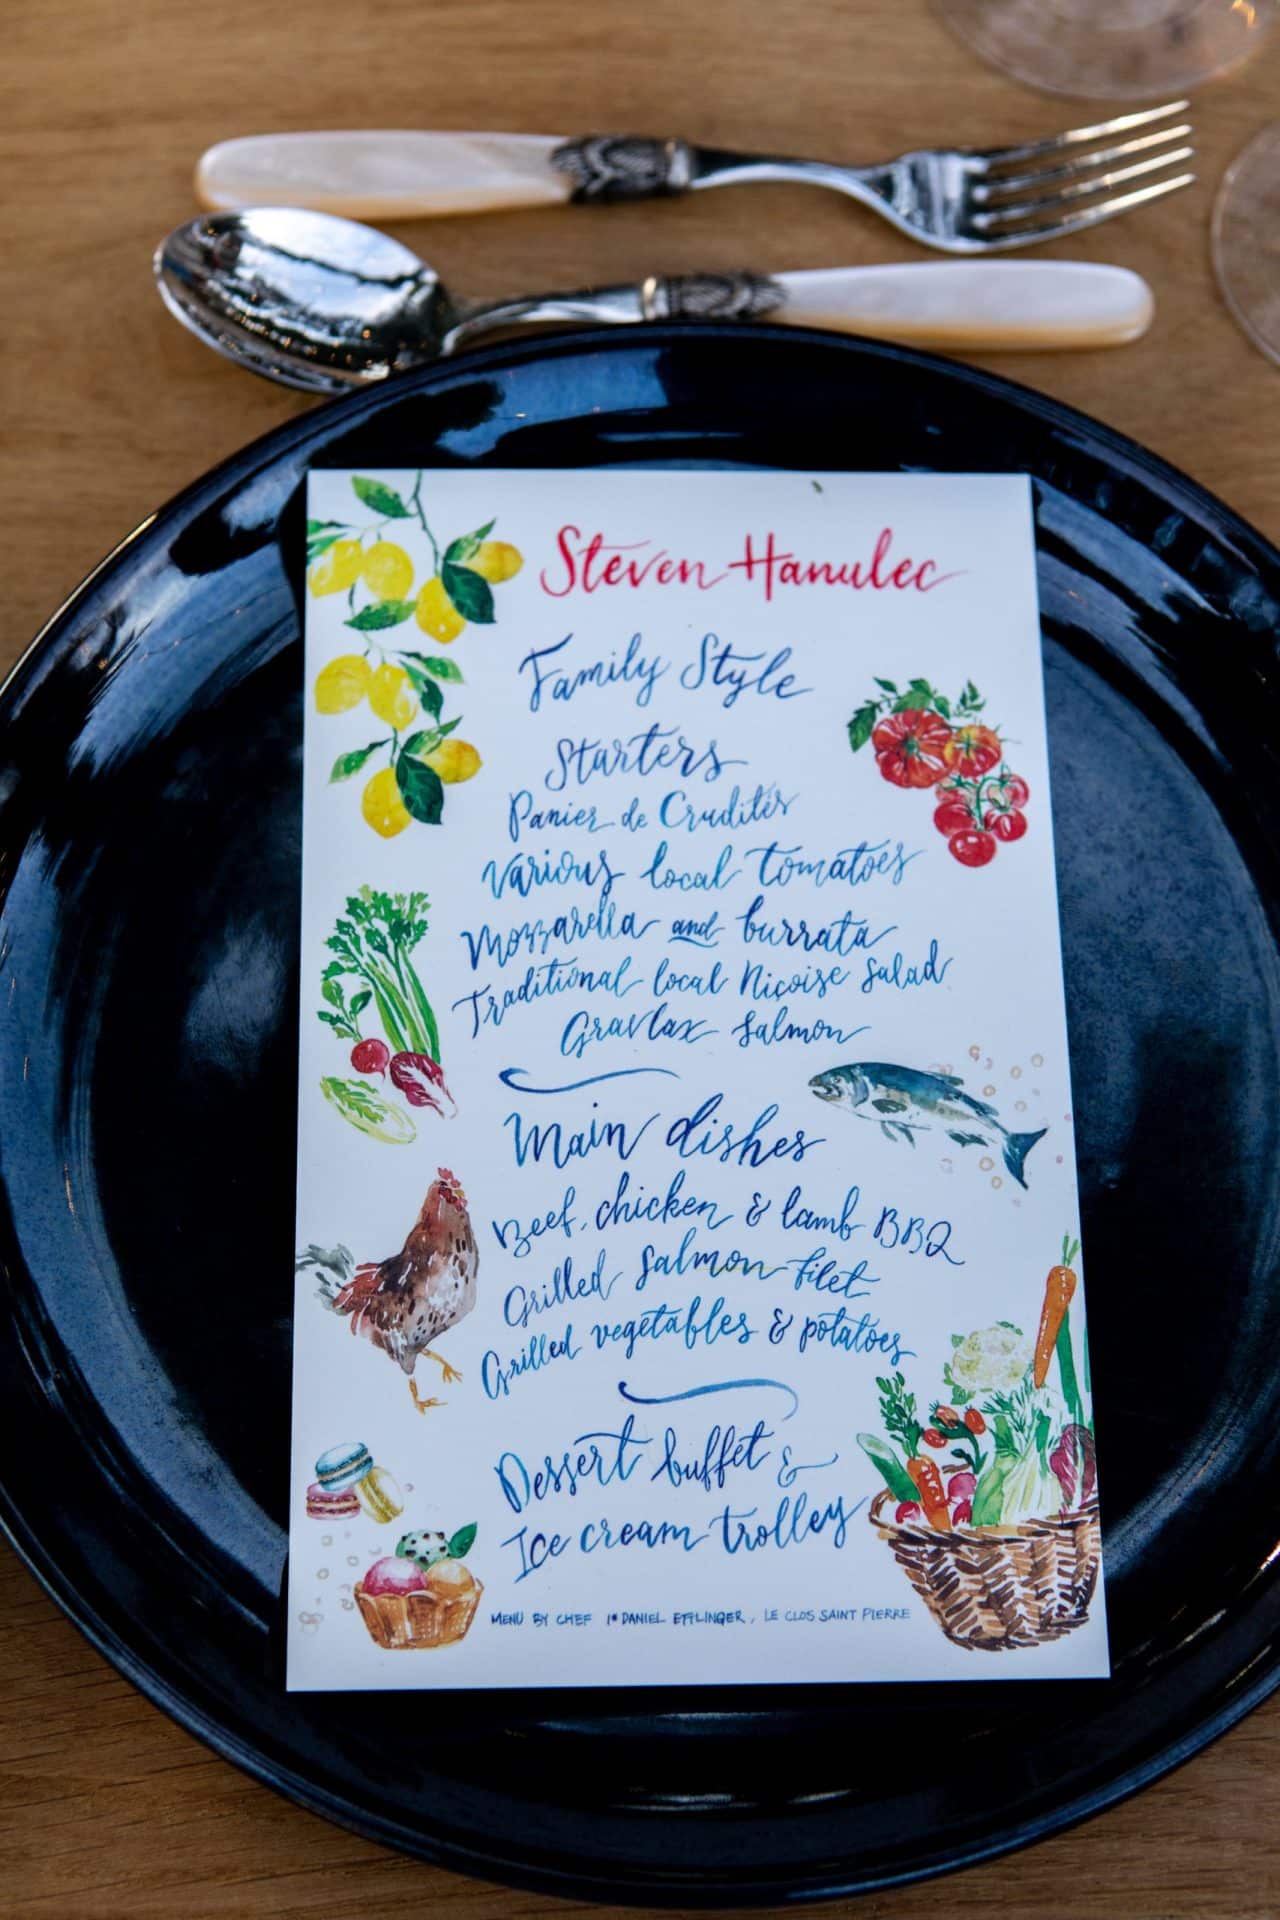 Steven Hanulec
Family Style
Starters
Panier de Crudités
Various local tomatoes
Mozzarella and burrata
Traditional local Niçoise Salad
Gravlax Salmon
Main dishes
Beef, chicken & lamb BBQ
Grilled Salmon filet
Grilled vegetables & potatoes
Dessert buffet &
Ice cream trolley
MENU BY CHEF 1* DANIEL ETTLINGER, LE CLOS SAINT PIERRE